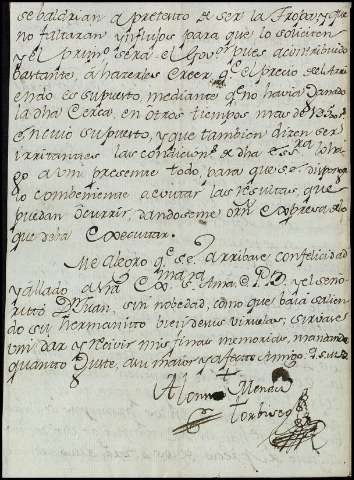 se baldrian a pretesto de ser la Tropa, y que
no faltaran ynflujos para que lo soliciten
y el prim.º sera el Gov.or pues a contribuido
bastante, a hazerles creer, q.e el precio de el Arri
endo es supuesto, mediante q.e no havia dando
la dha Cerca, en otros tiempos mas de
en cuio supuesto, y que tambien diren ser
irritantes las condicion.s de dha es.ra lo ha
go a vm presente todo, para que se dispon
lo combeniente a evitar las resultas, que
puedan ocurrir, dandoseme orn expresa de lo
que deba executar.
Me alegro q.e se arribase con felicidad
mara
y allado a Exª S.ª Ana, P. D. y el seno
ritto Dn Juan, sin nobedad, como que baia salien
do su hermanitto bien de sus viruelas; sirvase
vm dar y recivir mis finas memorias, mandando
quanto guste, a su maior y afecto Amigo.
Alonso Menac
Torbisco